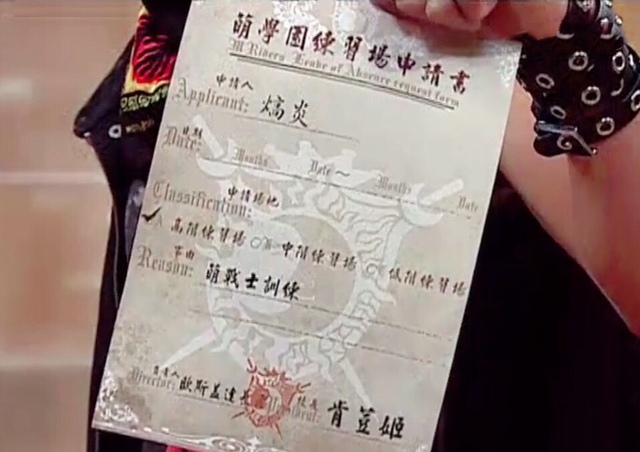 萌學園練習場申請書
M Riders' Leave of Absence request form
申請人
Applicant: 熇炎
日期
Date: Months Date ~ Months Date
申請場地
Classification:
✓A 高階練習場 B 中階練習場 C 低階練習場
事由
Reason: 萌戰士訓練
負責人
Director: 歐斯蓋達長 校長 肯豆姬